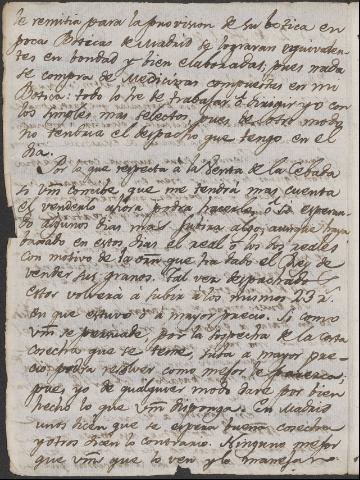 le remitia para la provision de su botica en
pocas Boticas de Madrid se lograran equivalen-
tes en bondad y bien elaboradas; pues nada
se compra de Medicinas compuestas en mi
Botica: todo lo he de trabajar ó dirigir yo con
los simples mas selectos, pues de otro modo
no tendria el despacho que tengo en el
dia.
Por lo que respecta à la Venta de la Cebada
si Vm concibe que me tendrá mas cuenta
el venderla ahora podrá hacerlo, ó si esperan-
do algunos dias mas subira algo; aunque haya
baxado en estos dias el real ó los dos reales
con motivo de la orn que ha dado el Rey de
vender sus granos. Tal vez despachados
estos volverà à subir à los mismos
en que estuvo à mayor precio. Si como
Vm se persuade, por la sospecha de la corta
cosecha que se teme, suba a mayor pre-
cio podra resolver como mejor le parezca;
pues yo de qualquier modo daré por bien
hecho lo que Vm disponga. En Madrid
unos dicen que se espera buena cosecha
y otros dicen lo contrario. Ninguno mejor
que Vms que lo ven y lo manejan